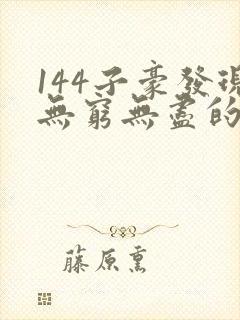 144子豪發現
無窮無盡的
藤原熏